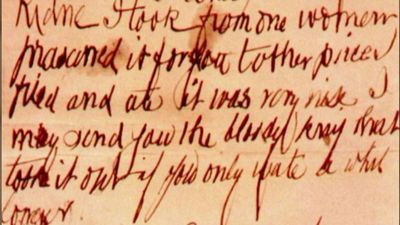 Kidne I took from one women
prasarved it for you tother piece
fried and ate it was very nise I
may send you the bloody knif that
took it out if you only wate a whil
longer